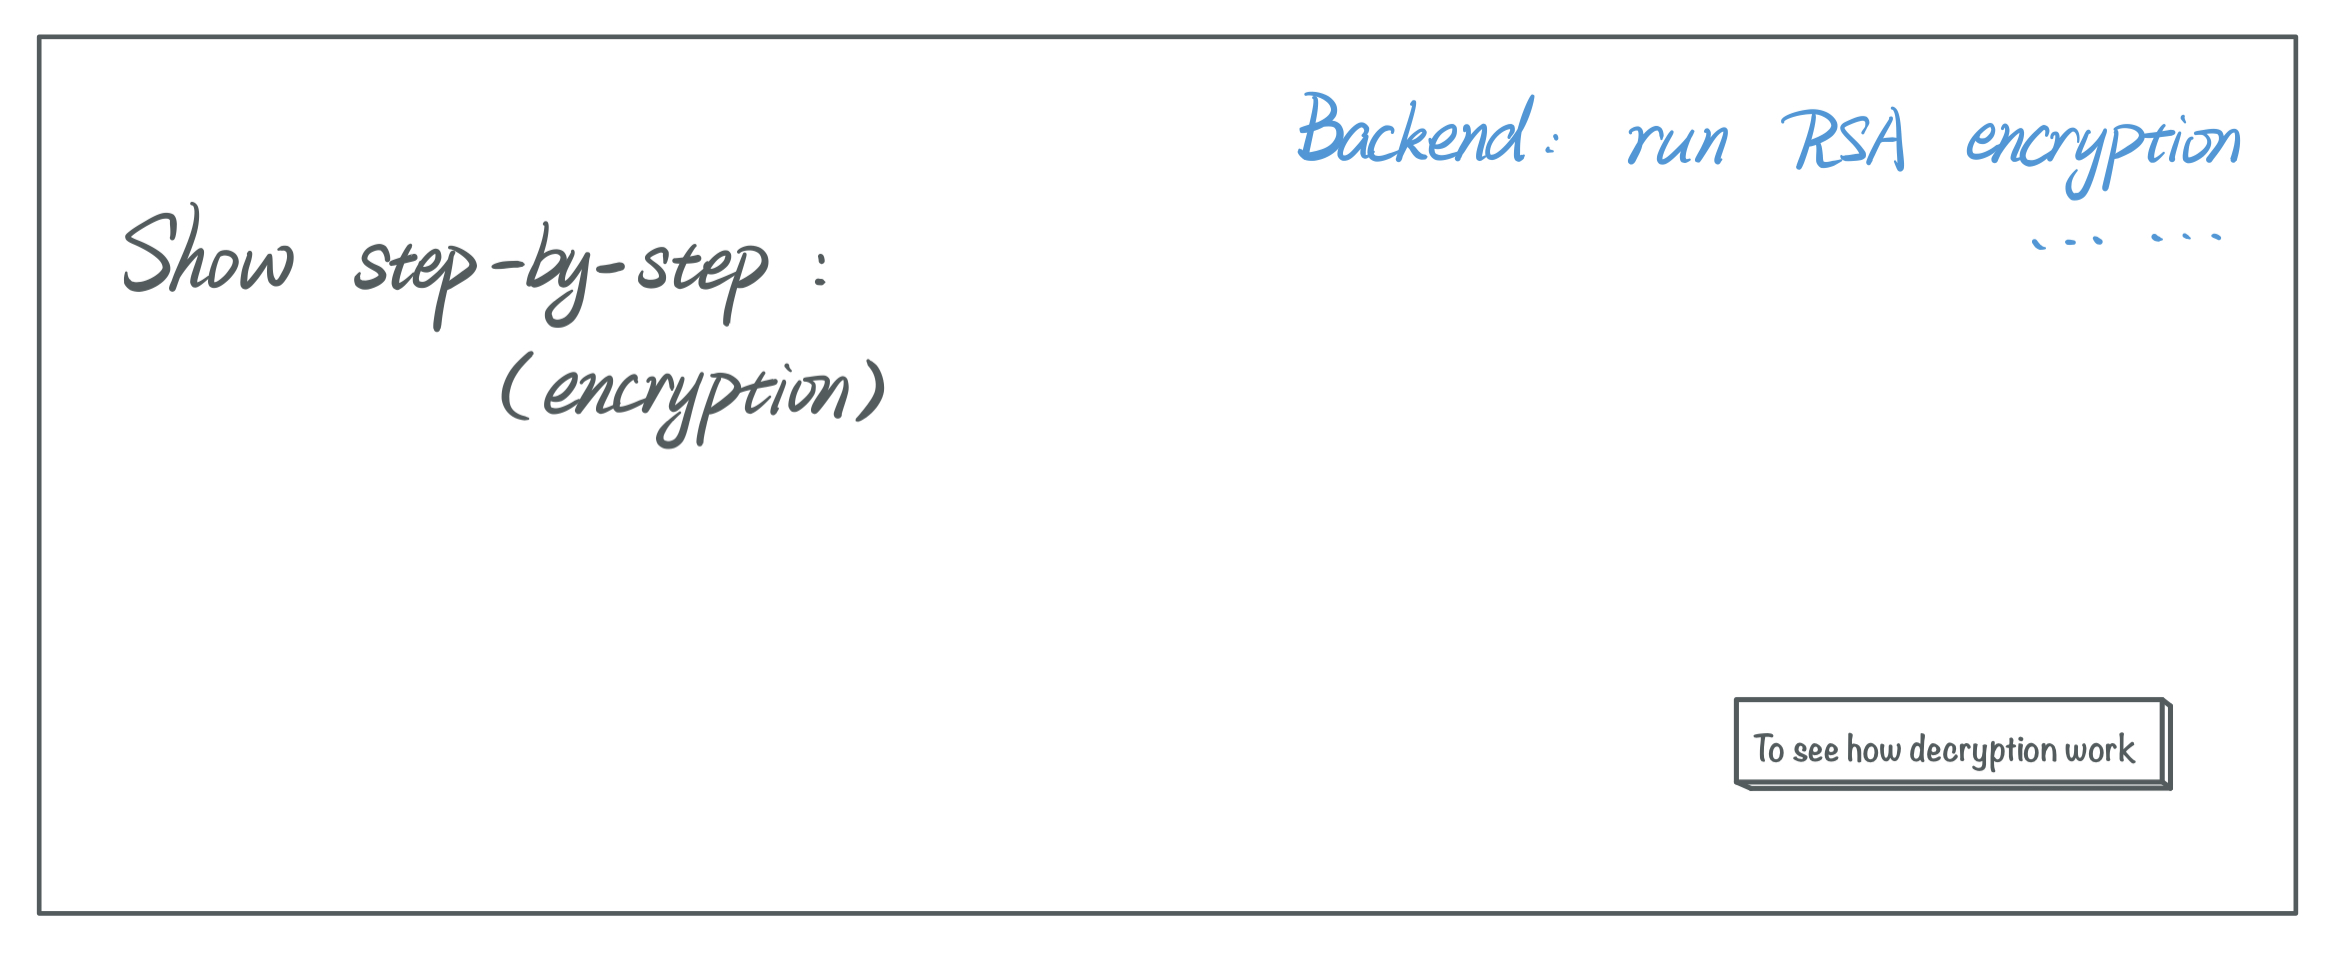 Backend: run RSA encryption
... ...
Show step-by-step :
(encryption)
To see how decryption work